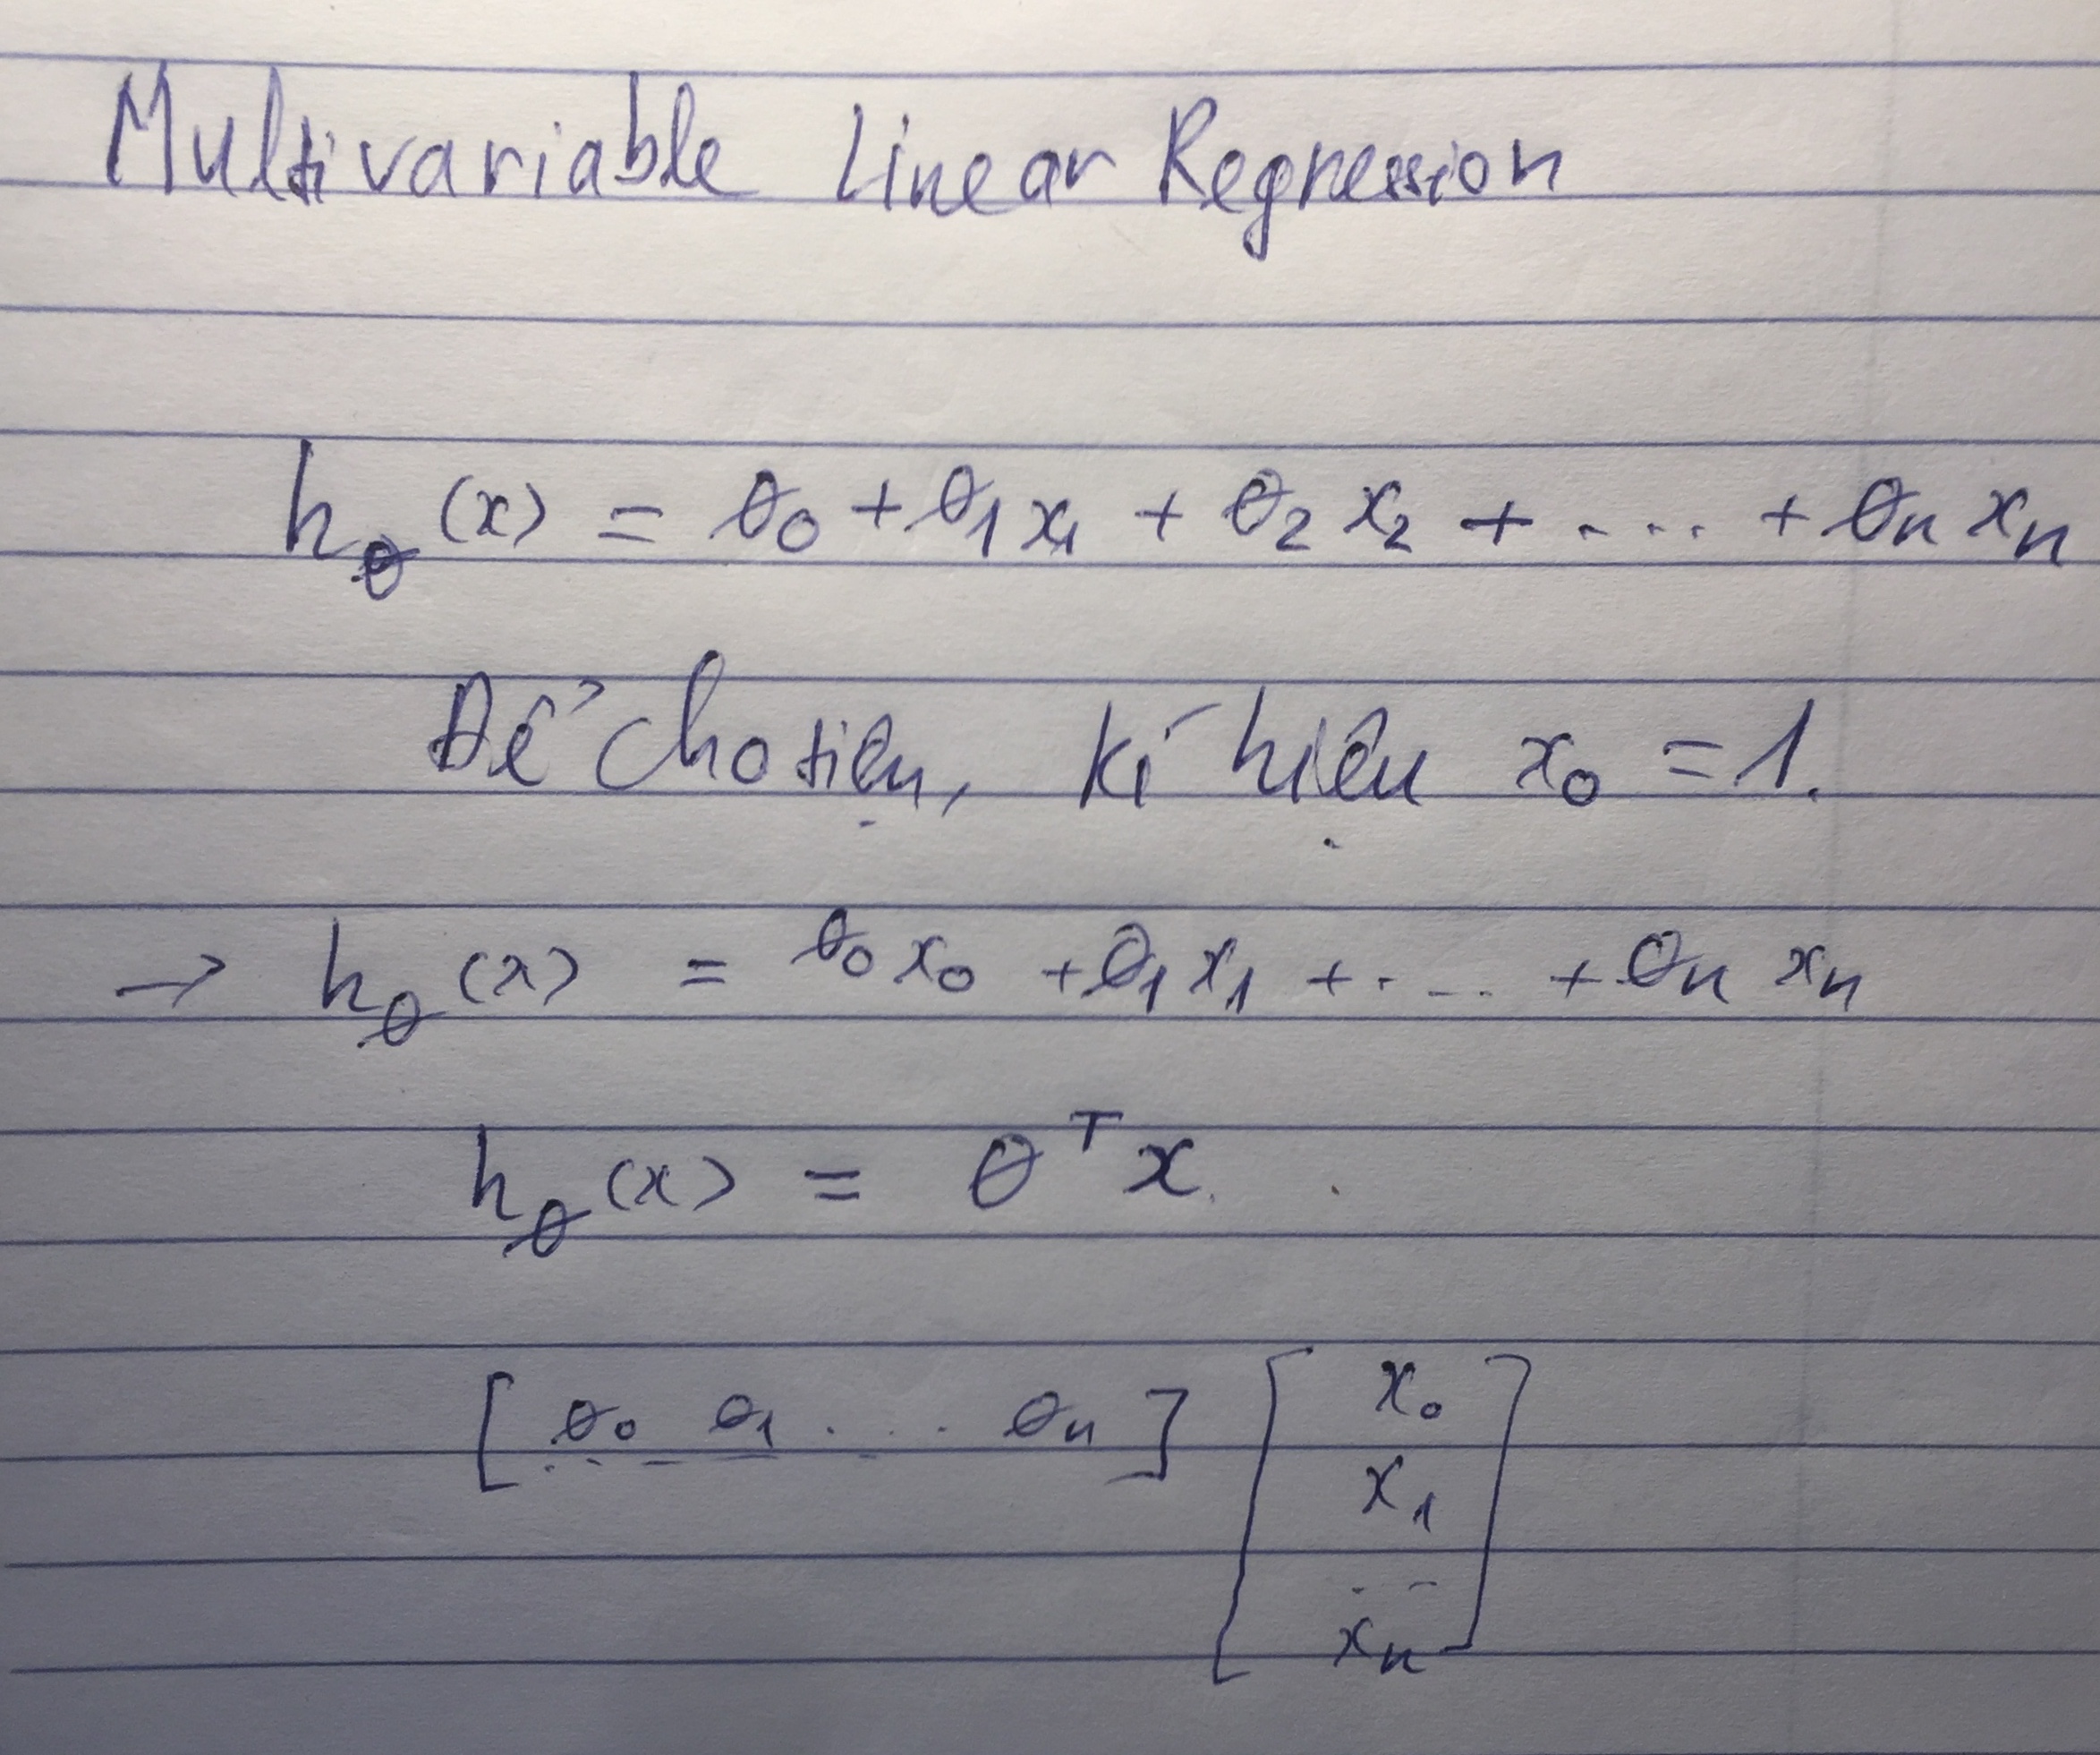 Multivariable Linear Regression
hθ(x) = θ0 + θ1x1 + θ2x2 + .... + θnxn
Để cho tiện, kí hiệu x0 = 1.
→ hθ(x) = θ0x0 + θ1x1 + .... + θnxn
hθ(x) = θᵀx.
[θ0 θ1 .... θn] [x0
x1
...
xn]